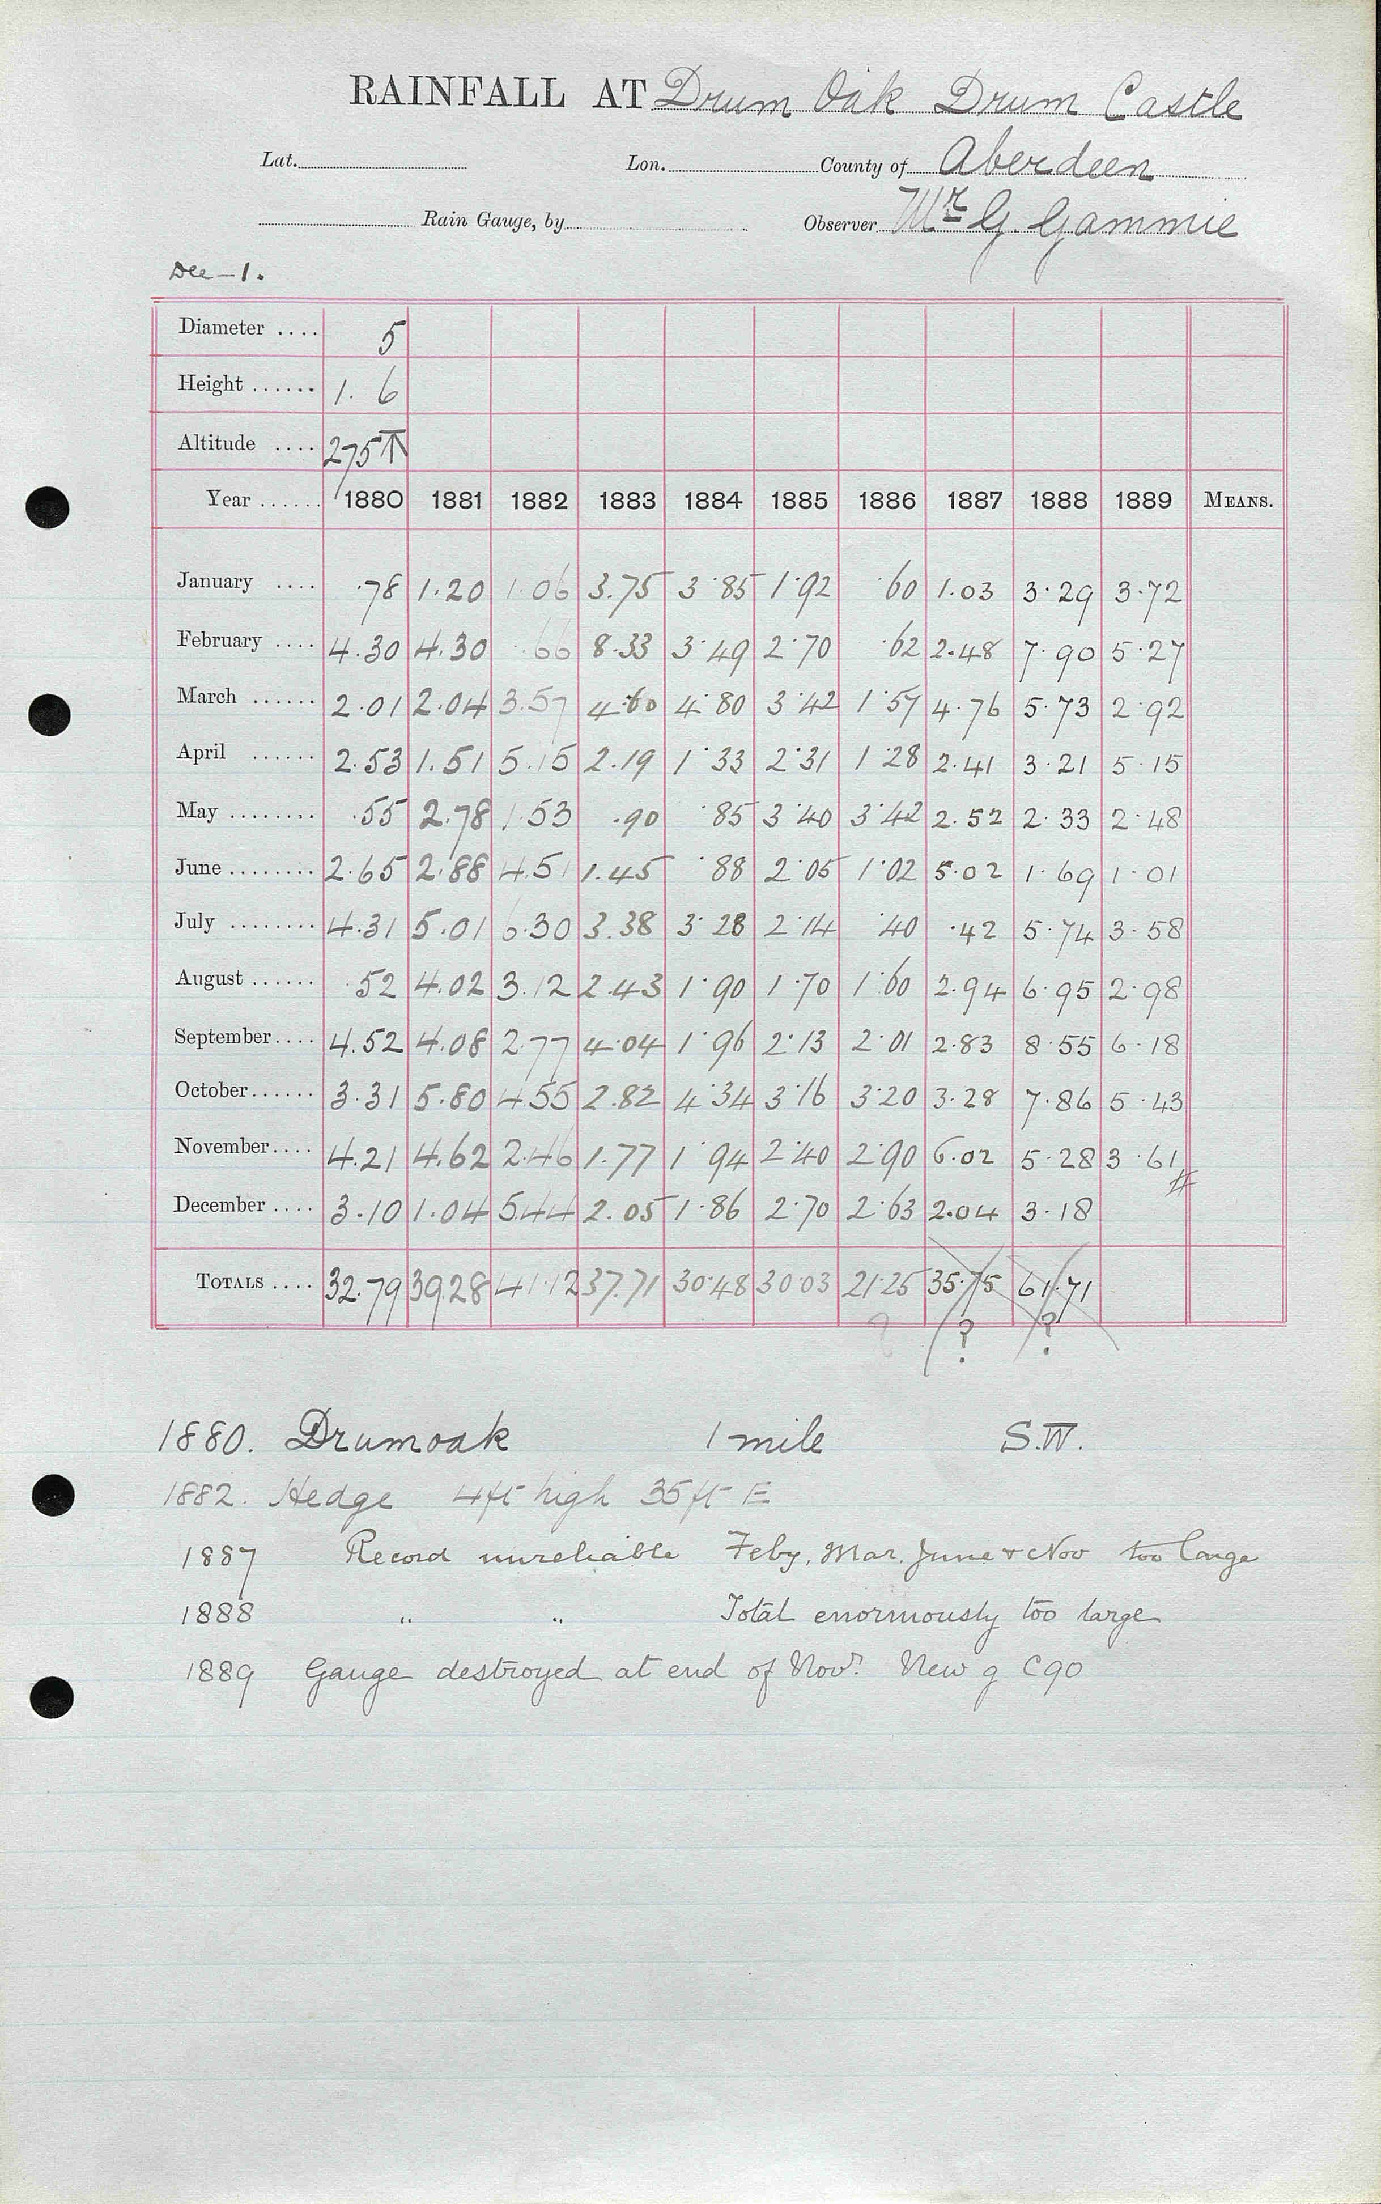 RAINFALL AT Drum Oak Drum Castle
Lat. Lon. County of Aberdeen
Rain Gauge, by Observer Mr G. Gammie
Dec-1.
Diameter .... 5
Height ...... 1. 6
Altitude .... 275 T
Year ...... 1880 1881 1882 1883 1884 1885 1886 1887 1888 1889 MEANS.
January .... .78 1.20 1.06 3.75 3.85 1.92 .60 1.03 3.29 3.72
February .... 4.30 4.30 .66 8.33 3.49 2.70 .62 2.48 7.90 5.27
March ...... 2.01 2.04 3.57 4.60 4.80 3.42 1.57 4.76 5.73 2.92
April ...... 2.53 1.51 5.15 2.19 1.33 2.31 1.28 2.41 3.21 5.15
May ........ .55 2.78 1.53 .90 .85 3.40 3.42 2.52 2.33 2.48
June ........ 2.65 2.88 4.51 1.45 .88 2.05 1.02 5.02 1.69 1.01
July ........ 4.31 5.01 6.30 3.38 3.28 2.14 .40 .42 5.74 3.58
August ...... .52 4.02 3.12 2.43 1.90 1.70 1.60 2.94 6.95 2.98
September .... 4.52 4.08 2.77 4.04 1.96 2.13 2.01 2.83 8.55 6.18
October ...... 3.31 5.80 4.55 2.82 4.34 3.16 3.20 3.28 7.86 5.43
November .... 4.21 4.62 2.46 1.77 1.94 2.40 2.90 6.02 5.28 3.61
December .... 3.10 1.04 5.44 2.05 1.86 2.70 2.63 2.04 3.18
TOTALS .... 32.79 39.28 41.12 37.71 30.48 30.03 21.25 35.75 61.71
? ? ?
1880. Drumoak 1 mile S.W.
1882. Hedge 4ft high 35ft E
1887 Record unreliable Feby, Mar. June & Nov too large
1888 " " Total enormously too large
1889 Gauge destroyed at end of Novr. New g C90